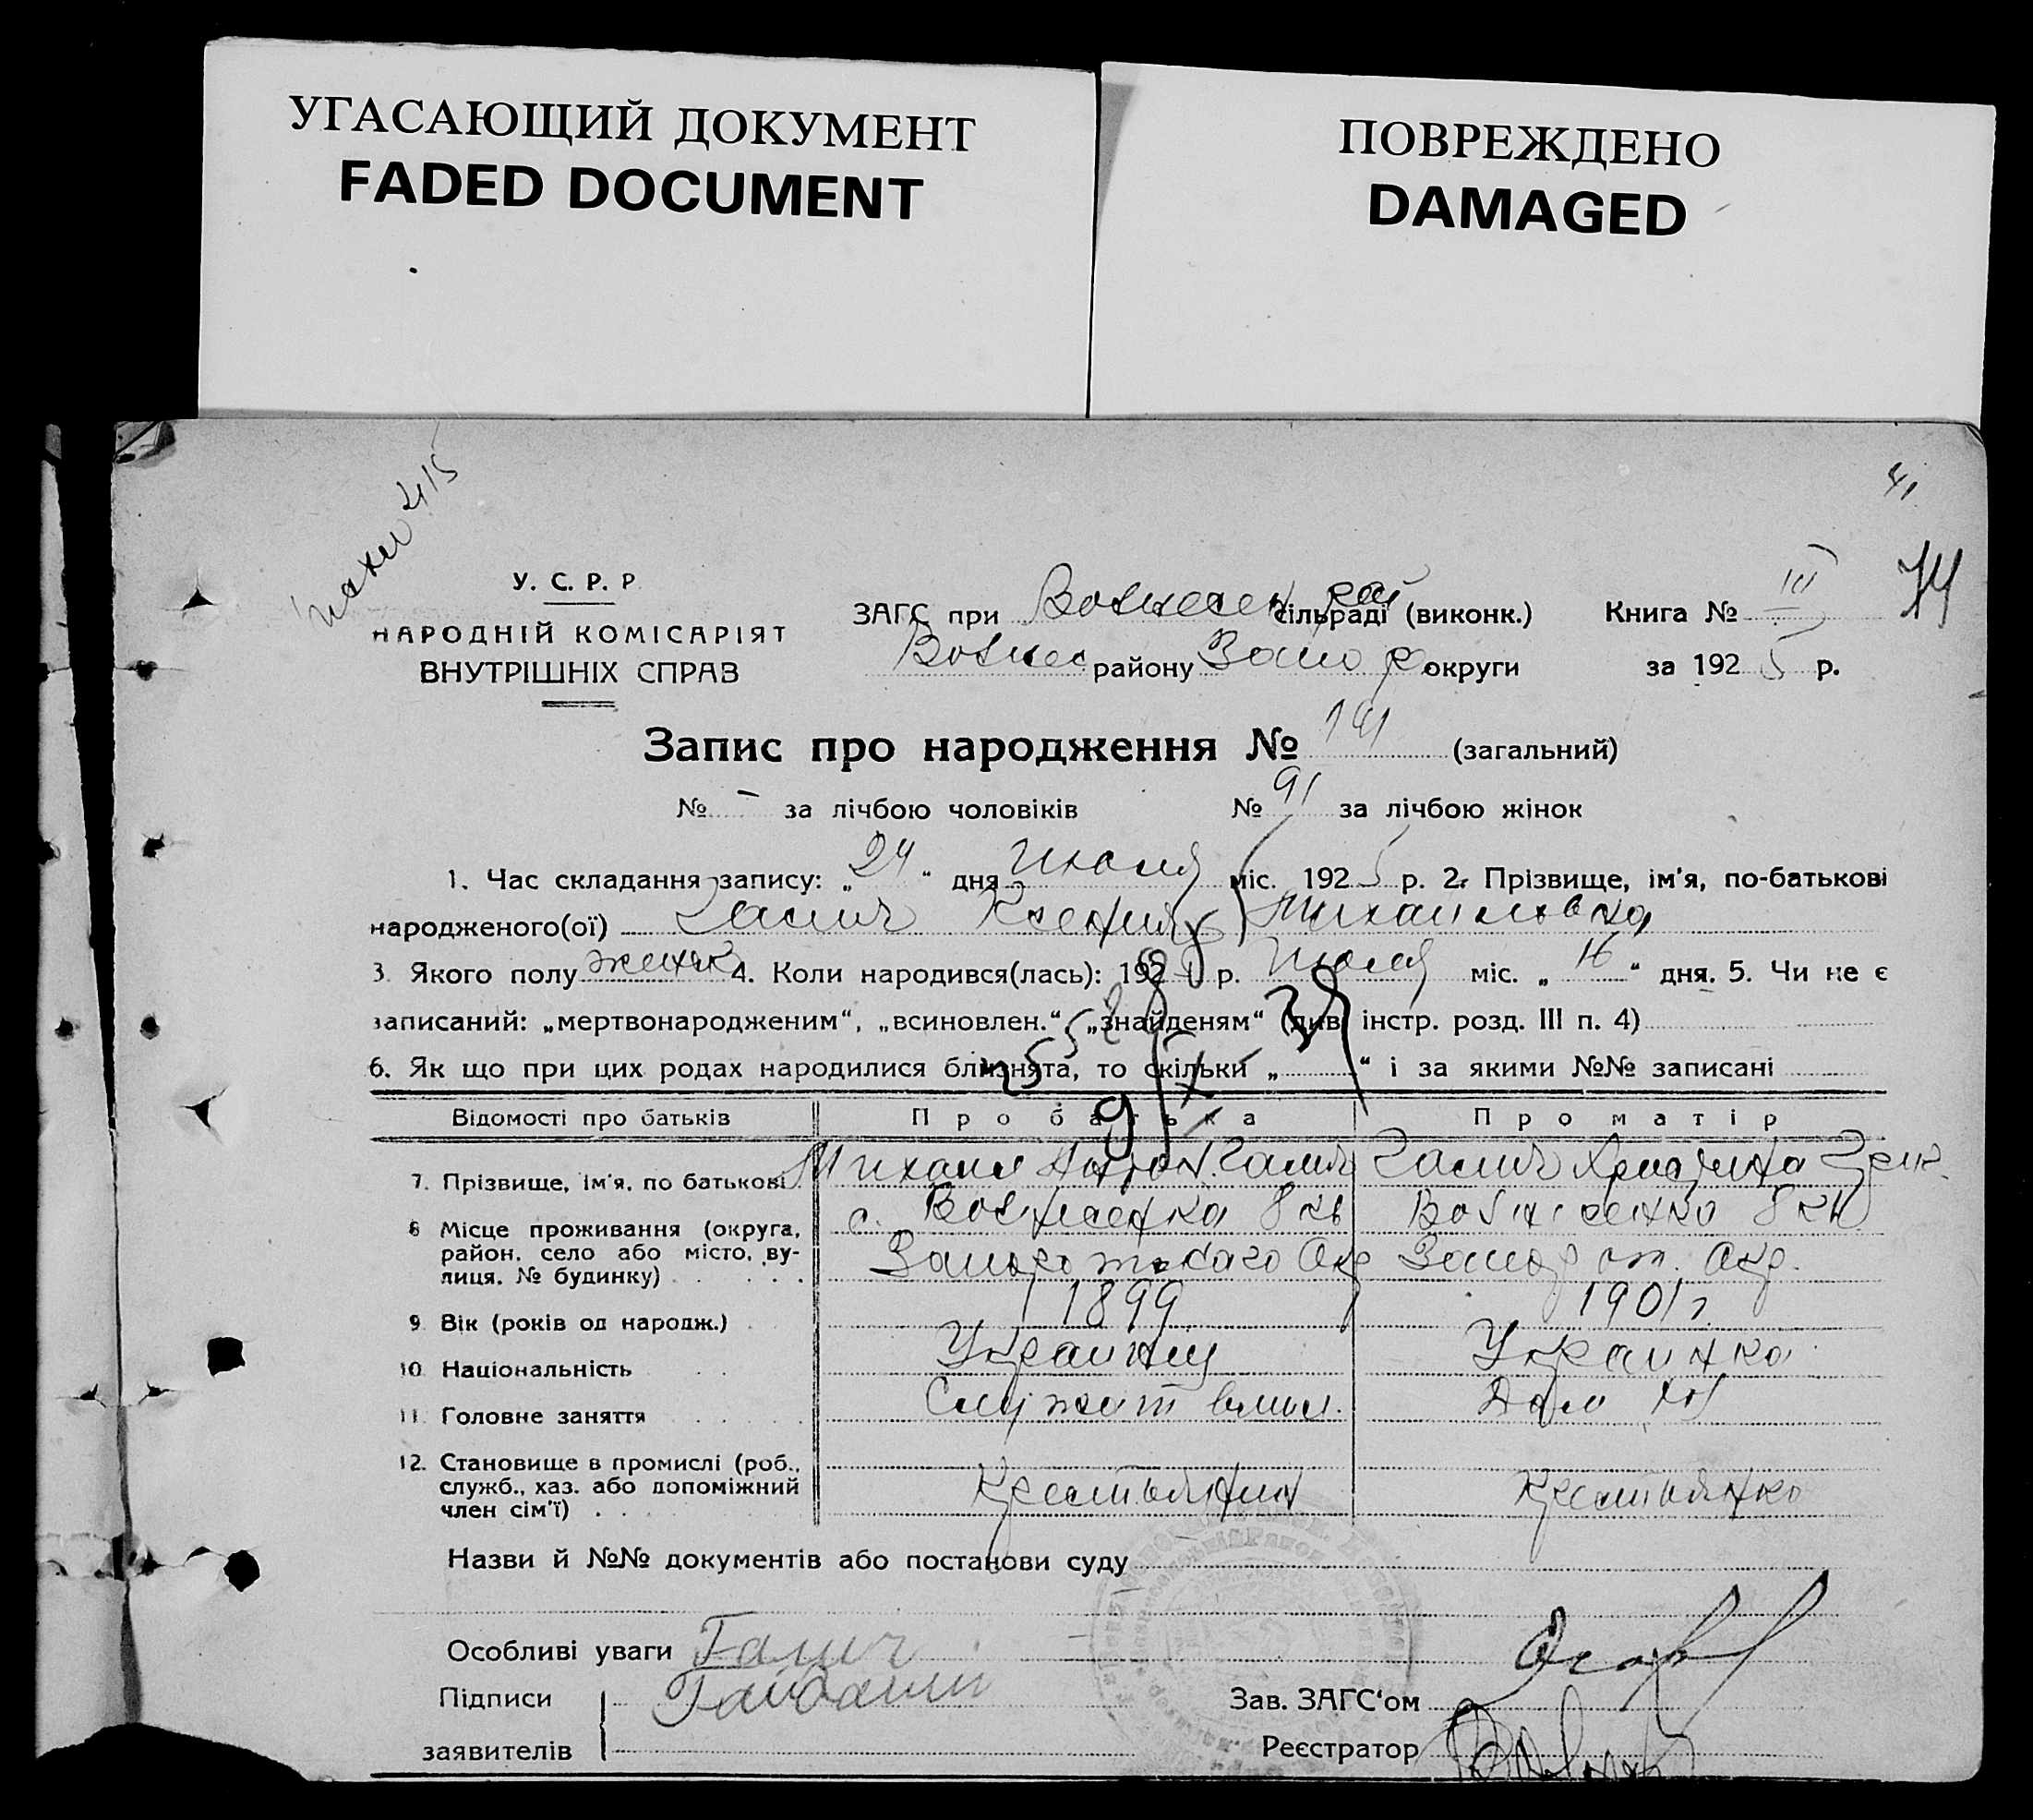 УГАСАЮЩИЙ ДОКУМЕНТ
FADED DOCUMENT
ПОВРЕЖДЕНО
DAMAGED
У. С. Р. Р
НАРОДНІЙ КОМІСАРІЯТ
ВНУТРІШНІХ СПРАВ
ЗАГС при Вознесен рай сільраді (виконк.) Книга № III 74
Вознес. району Запор. округи за 1925 р.
Запис про народження № 191 (загальний)
№ - за лічбою чоловіків № 91 за лічбою жінок
1. Час складання запису: „24“ дня Июля міс. 1925 р. 2. Прізвище, ім'я, по-батькові
народженого(ої) Галич Ксения Михайловна
3. Якого полу женск 4. Коли народився(лась): 192 р. Июля міс. „16“ дня. 5. Чи не є
записаний: „мертвонародженим“, „всиновлен.“ „знайденям“ (див. інстр. розд. III п. 4)
6. Як що при цих родах народилися близнята, то скільки „ “ і за якими №№ записані
Відомості про батьків Про батька Про матір
7. Прізвище, ім'я, по батькові Михаил Антон. Галич Галич Христина
8 Місце проживання (округа, район, село або місто, вулиця, № будинку)
с. Вознесенка 8 кв Вознесенка 8 кв
Запорожского Окр Запорож. Окр.
9 Вік (років од народж.) 1899 1901 г.
10 Національність Украинец Украинка
11 Головне заняття Служит Дом хоз
12. Становище в промислі (роб., служб., хаз. або допоміжний член сім'ї) Крестьянин Крестьянка
Назви й №№ документів або постанови суду
Особливі уваги Галич
Підписи Зав. ЗАГС'ом
заявителів Реєстратор